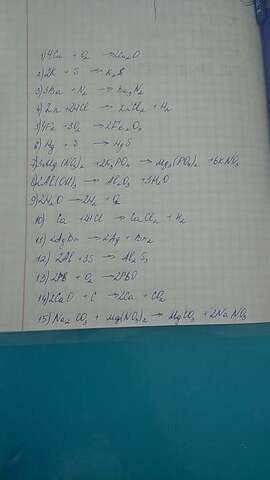 1) 4Cu + O₂ → 2Cu₂O
2) 2K + S → K₂S
3) 3Ba + N₂ → Ba₃N₂
4) Zn + 2HCl → ZnCl₂ + H₂
5) 4Fe + 3O₂ → 2Fe₂O₃
6) Hg + S → HgS
7) 3Mg(NO₃)₂ + 2K₃PO₄ → Mg₃(PO₄)₂ + 6KNO₃
8) 2Al(OH)₃ → Al₂O₃ + 3H₂O
9) 2H₂O → 2H₂ + O₂
10) Ca + 2HCl → CaCl₂ + H₂
11) 2AgBr → 2Ag + Br₂
12) 2Al + 3S → Al₂S₃
13) 2PB + O₂ → 2PBO
14) 2CuO + C → 2Cu + CO₂
15) Na₂CO₃ + Mg(NO₃)₂ → MgCO₃ + 2NaNO₃